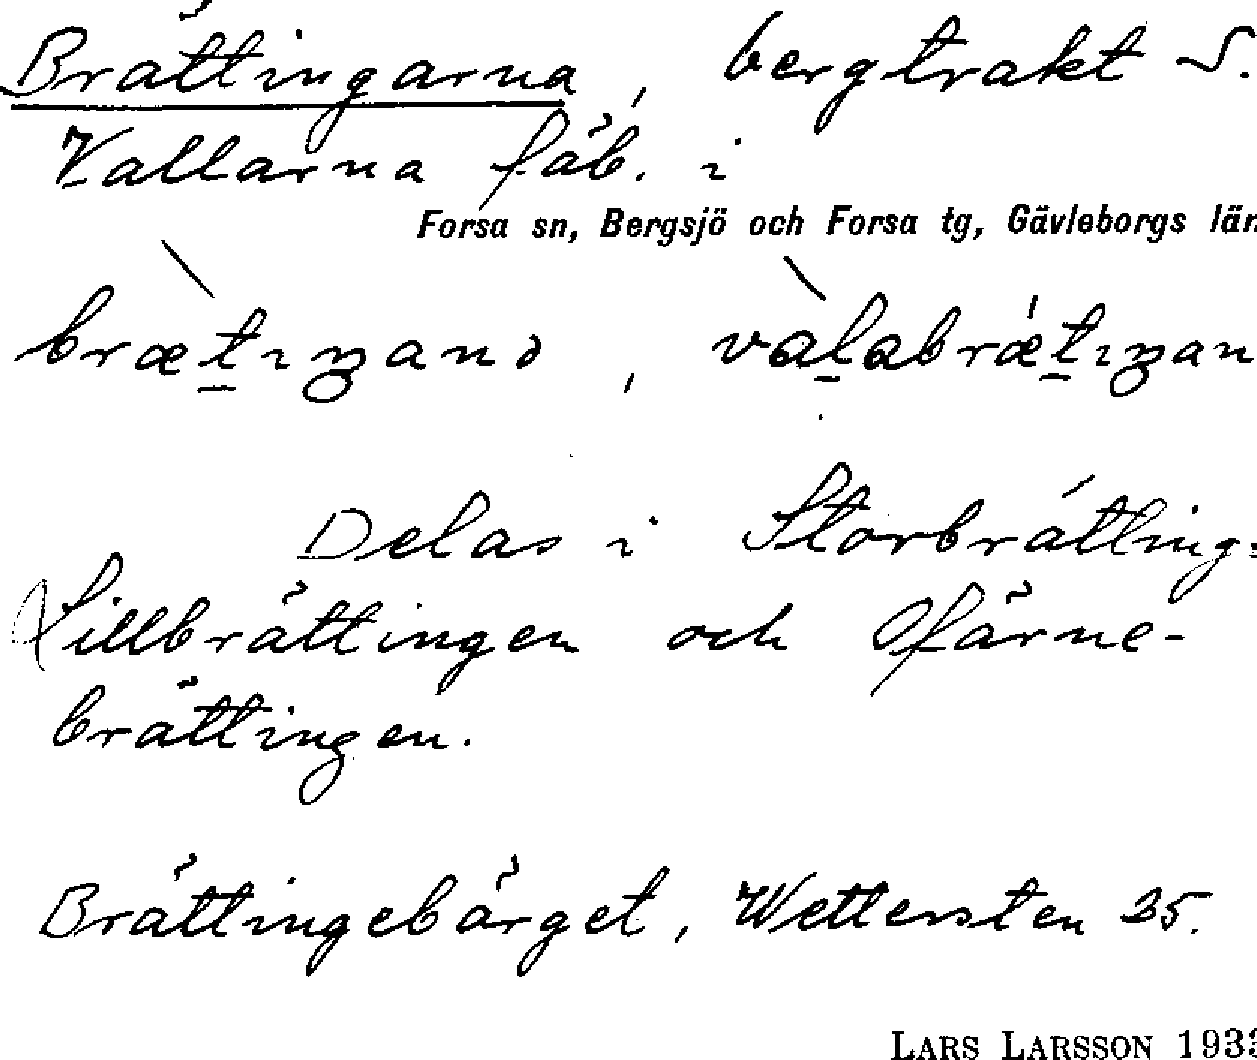 Brättingarna, bergtrakt S.
Vallarna fäb. i
Forsa sn, Bergsjö och Forsa tg, Gävleborgs län
brætıŋanə, valabrætıŋan
Delas i Storbrätting:
Lillbrättingen och Färne-
brättingen.
Brättingebärget, Wettersten 25.
LARS LARSSON 1933